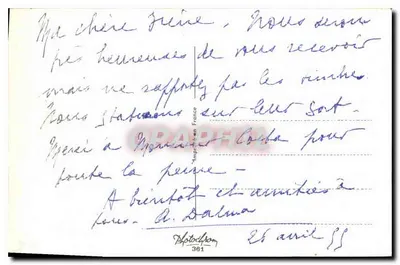 Ma chère Irène. Nous serons
très heureuses de vous recevoir
mais ne rapportez pas les
Nous sur leur sort.
Merci à Monsieur Costa pour
toute la peine -
A bientôt et amitiés à
tous. A. Dalma
25 avril 55
Photochrom
361